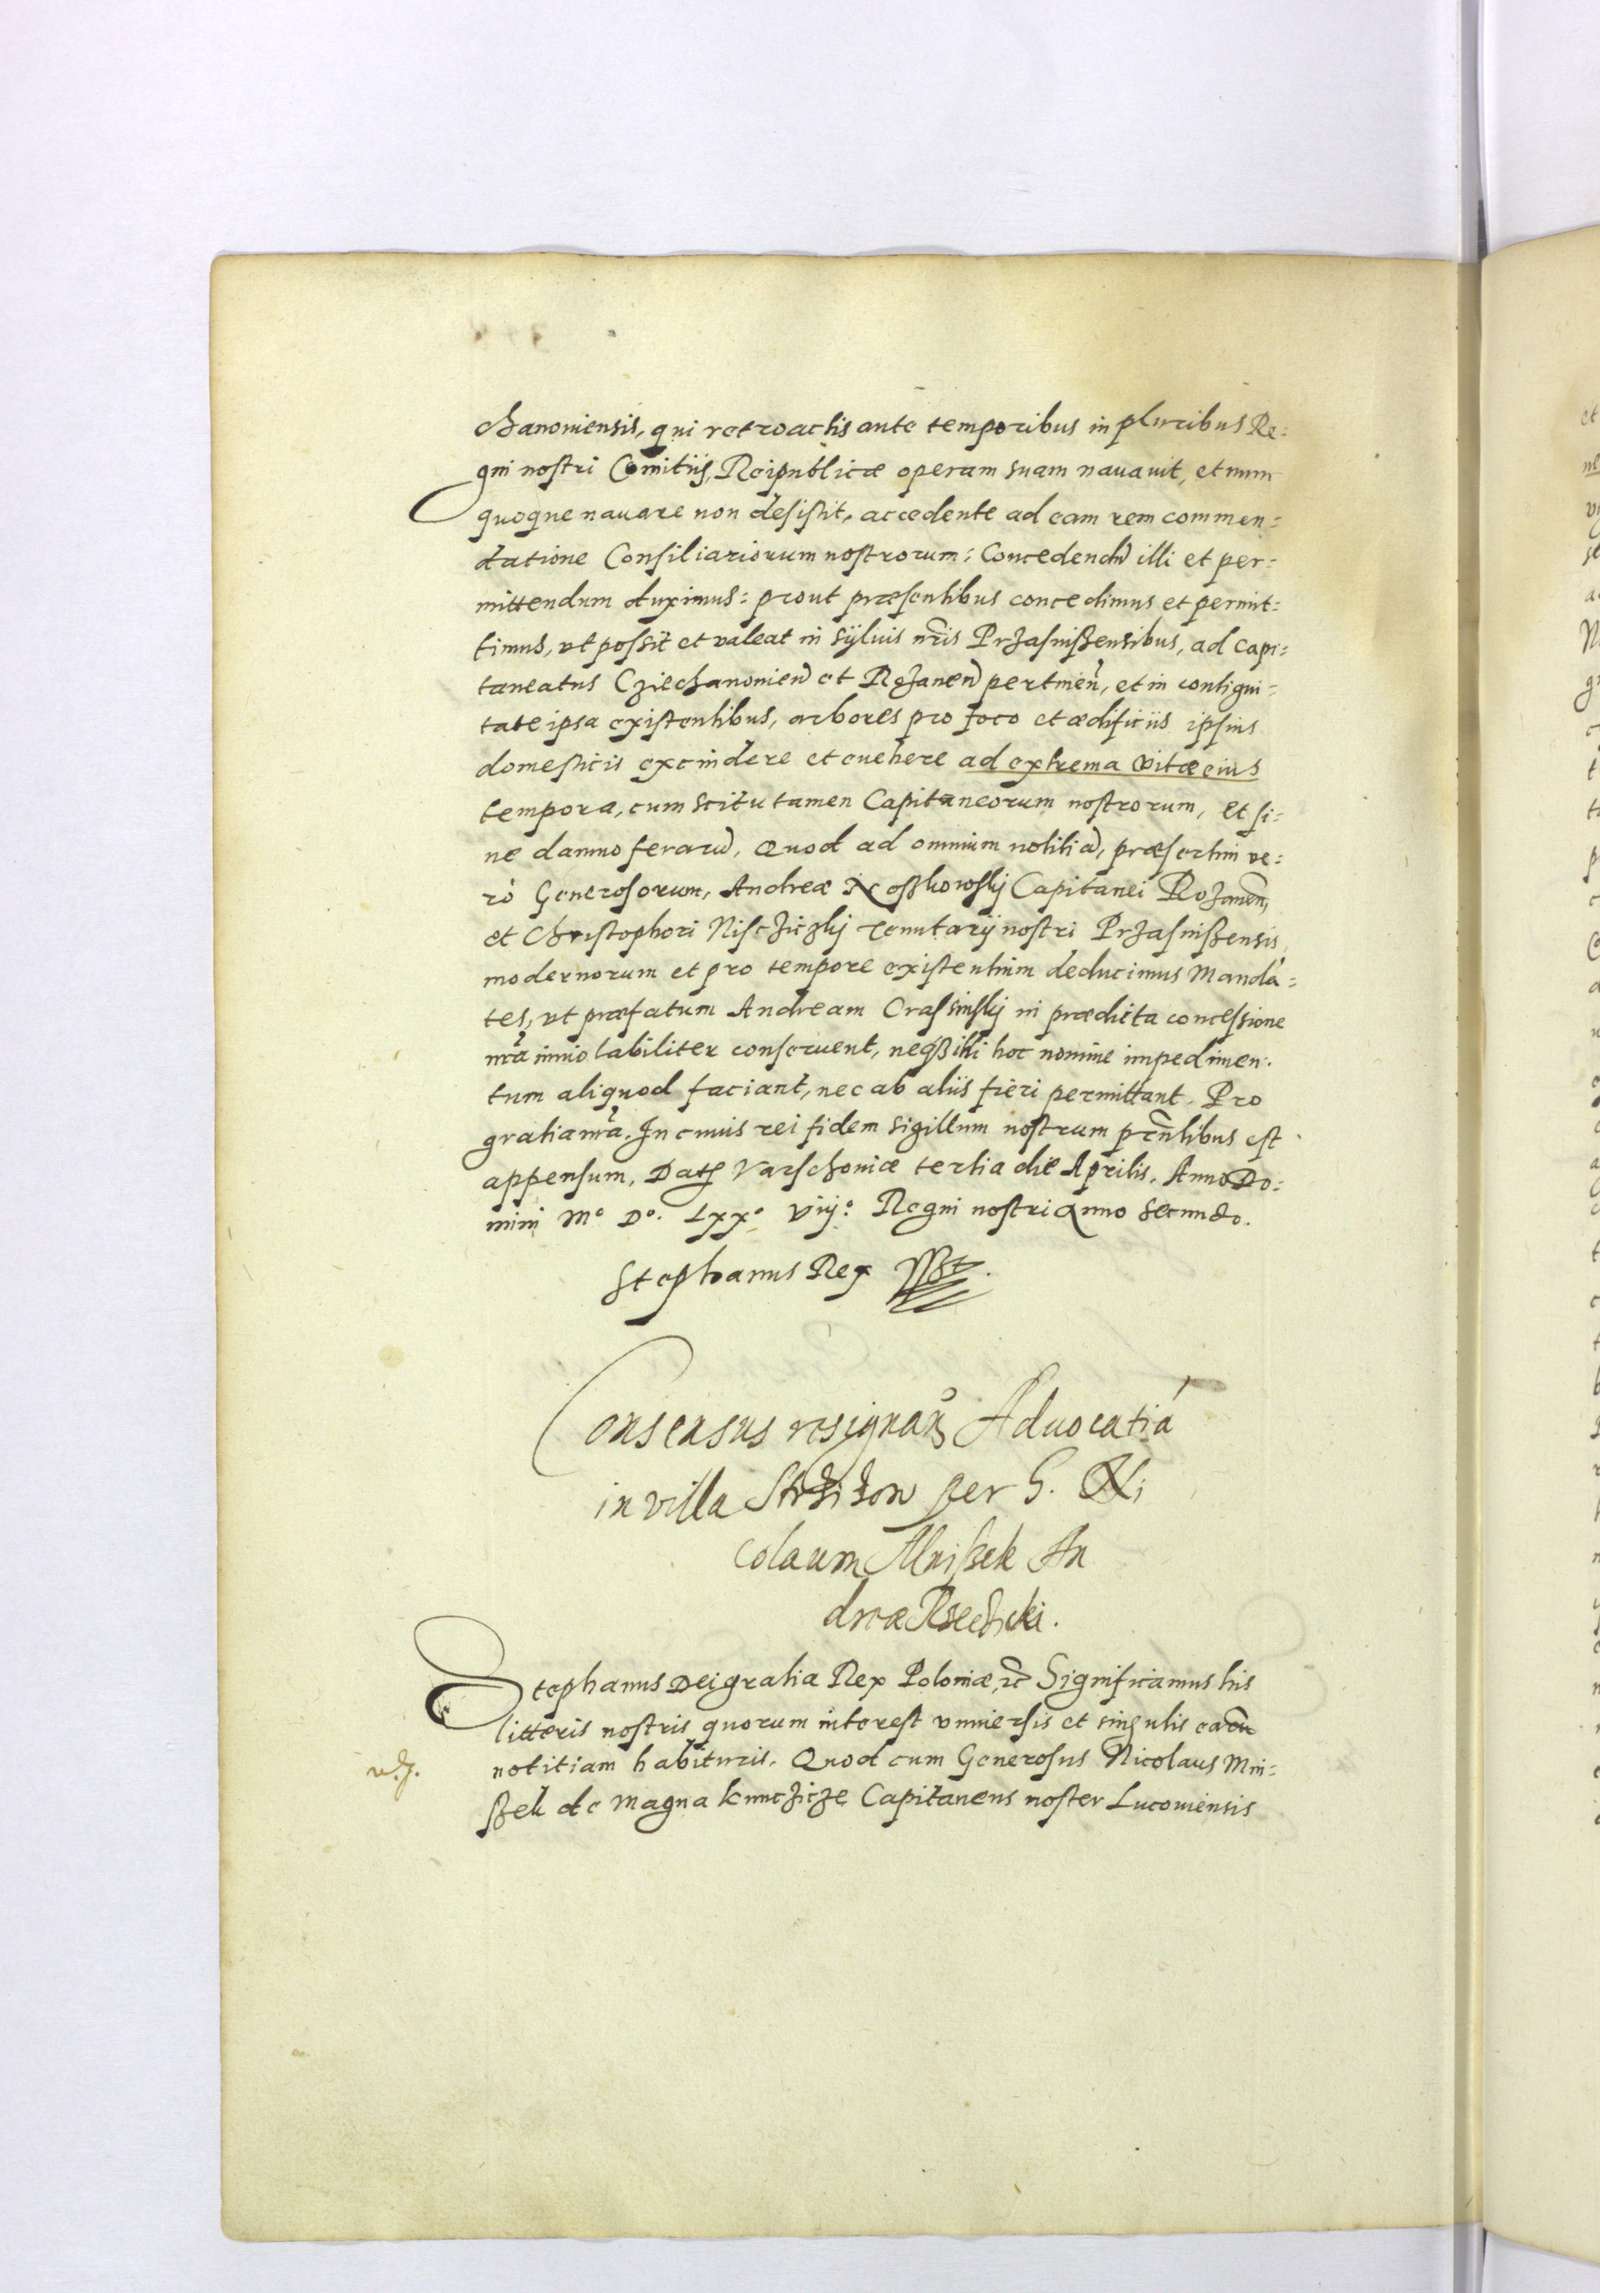 chanoviensis, qui retroactis ante temporibus in pluribus Re=
gni nostri Comitiis, Reipublicæ operam suam navavit, et nunc
quoque navare non desistit, accedente ad eam rem commen=
datione Consiliariorum nostrorum: Concedendū illi et per=
mittendum duximus: prout præsentibus concedimus et permit=
timus, vt possit et valeat in sÿlvis nr̃is Przasnißensibus, ad capi=
taneatus Cziechanovien̄ et Rozanen̄ pertinen̄, et in contigui=
tate ipsa existentibus, arbores pro foco et ædificiis ipsius
domesticis excindere et evehere ad extrema vitæ eius
tempora, cum scitu tamen Capitaneorum nostrorum, et si=
ne damno ferarū. Quod ad omnium notitiā, præsertim ve=
rò Generosorum, Andreæ Noßkowskÿ Capitanei Rozanen̄,
et Christophori Nisczickÿ Tenutarÿ nostri Przasnißensis
modernorum et pro tempore existentium deducimus Mandā=
tes, vt præfatum Andream Crassinskÿ in prædicta concessione
nr̃a inviolabiliter conservent, neqß illi hoc nomine impedimen=
tum aliquod faciant, nec ab aliis fieri permittant. Pro
gratia nr̃a. In cuius rei fidem sigillum nostrum pr̃ntibus est
appensum. Datß Varschoviæ tertia die Aprilis. Anno Do=
mini Mº Dº. Lxxº viijº Regni nostri Anno Secundo.
Stephanus Rex
Consensus resignan̄ Advocatiā
in villa Strziżow per G. Ni
colaum Mnißek An
dreæ Rzeczicki.
Stephanus Dei gratia Rex Poloniæ, ꝛc̃ Significamus his
litteris nostris quorum interest vniversis et singulis earū
notitiam habituris. Quod cum Generosus Nicolaus Mni=
ßek de Magna kunczicze Capitaneus noster Lucoviensis